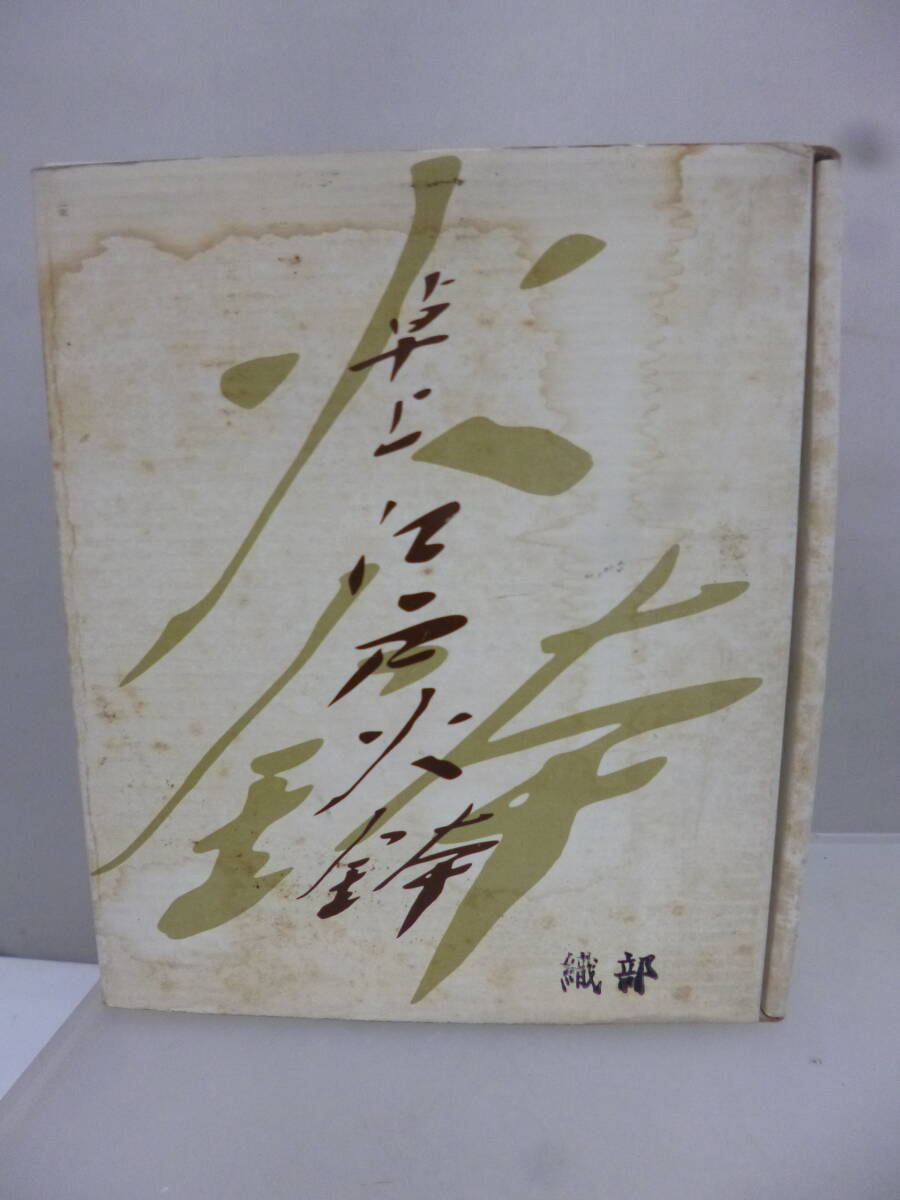 火鉢
卓上江戸火鉢
織部